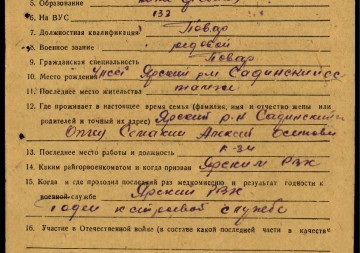 5. Образование
6. На ВУС 133
7. Должностная квалификация Повар
8. Военное звание рядовой
9. Гражданская специальность Повар
10. Место рождения Ярский р-н Садинский
11. Последнее место жительства
12. Где проживает в настоящее время семья (фамилия, имя и отчество жены или
родителей и точный их адрес) Ярский р-н Садинский
отцу Семакин Алексей
13. Последнее место работы и должность к-зн
14. Каким райгорвоенкоматом и когда призван Ярским РВК
15. Когда и где проходил последний раз медкомиссию и результат годности к
военной службе Ярский РВК
годен к строевой службе
16. Участие в Отечественной войне (в составе какой последней части в качестве